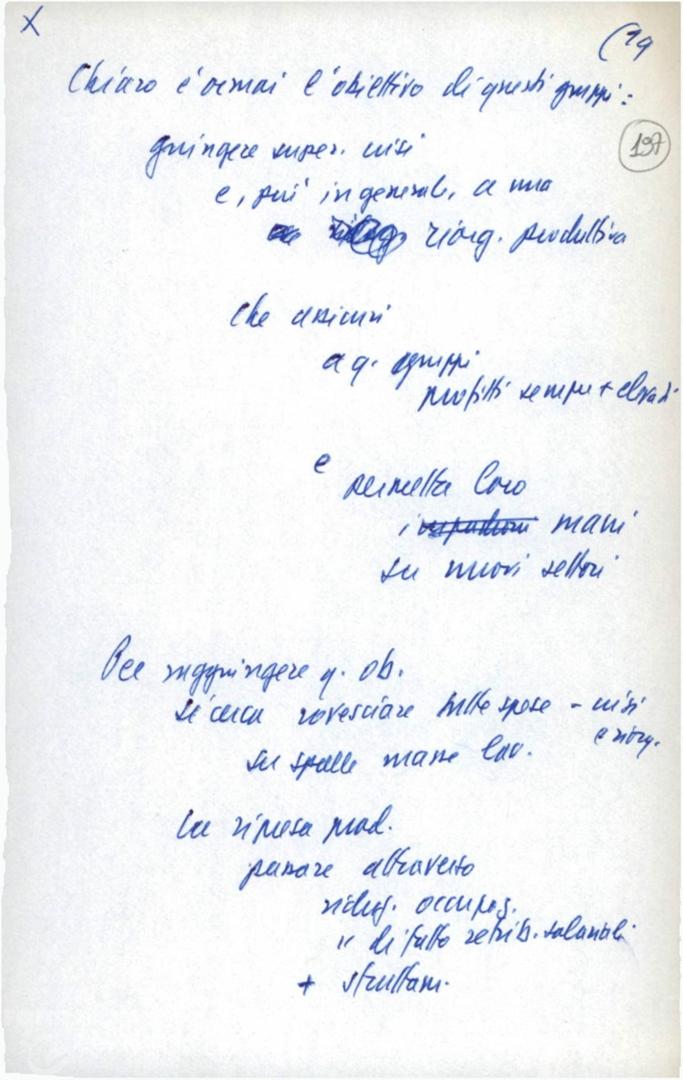 X
(19
Chiaro è ormai l'obiettivo di questi gruppi:
197
giungere super. crisi
e, più in generale, a una
riorg. produttiva
che assicuri
a q. gruppi
profitti sempre + elevati
e
permetta loro
mani
su nuovi settori
Per raggiungere q. ob.
si cerca rovesciare tutte spese - crisi
e riorg.
su spalle masse lav.
La ripresa prod.
passare attraverso
riduz. occupaz.
" di fatto retrib. salariali
+ sfruttam.